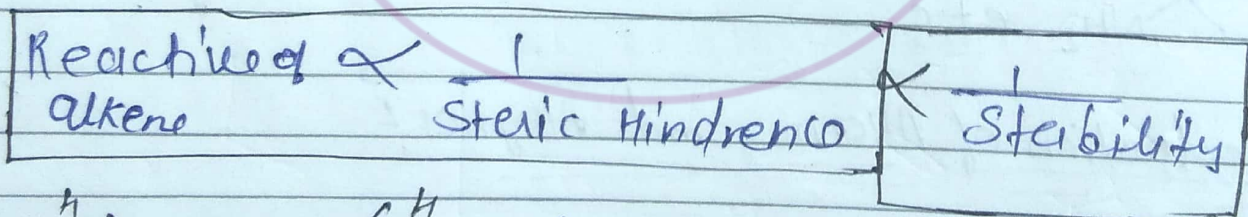 Reactive of ∝ 1 ∝ 1
alkene Steric Hindrence Stability
H CH